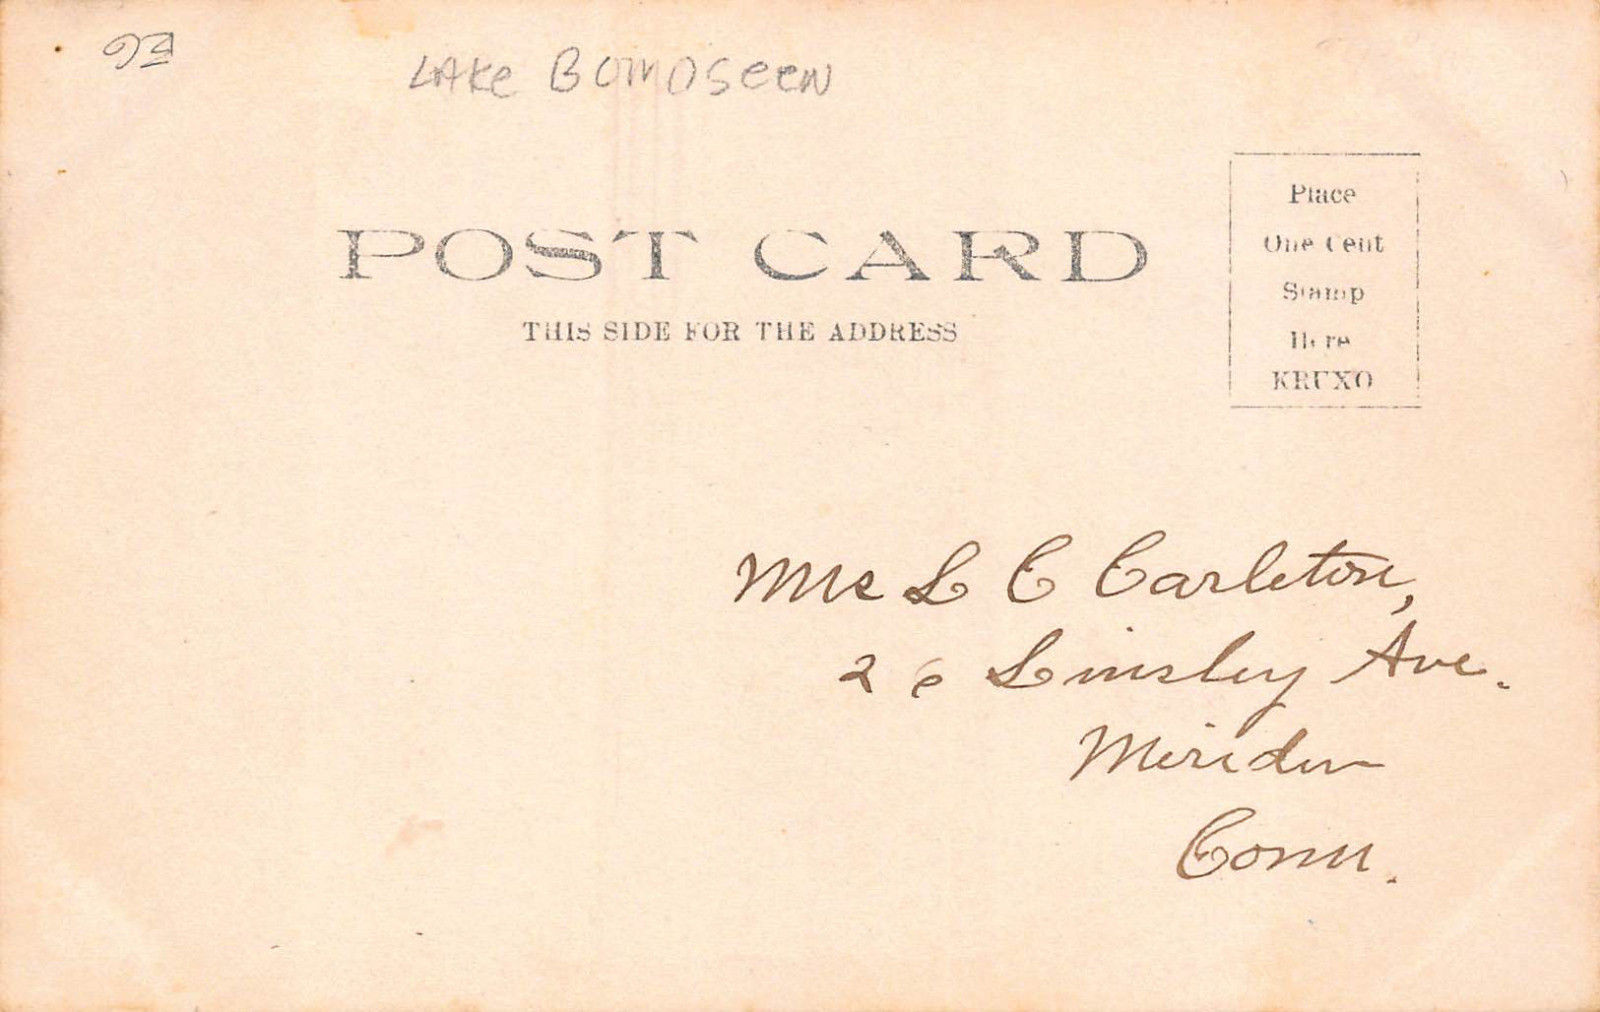 LAKE BOMOSEEN
POST CARD
THIS SIDE FOR THE ADDRESS
Place
One Cent
Stamp
Here
KRUXO
Mrs L C Carleton,
26 Linsley Ave.
Meriden
Conn.